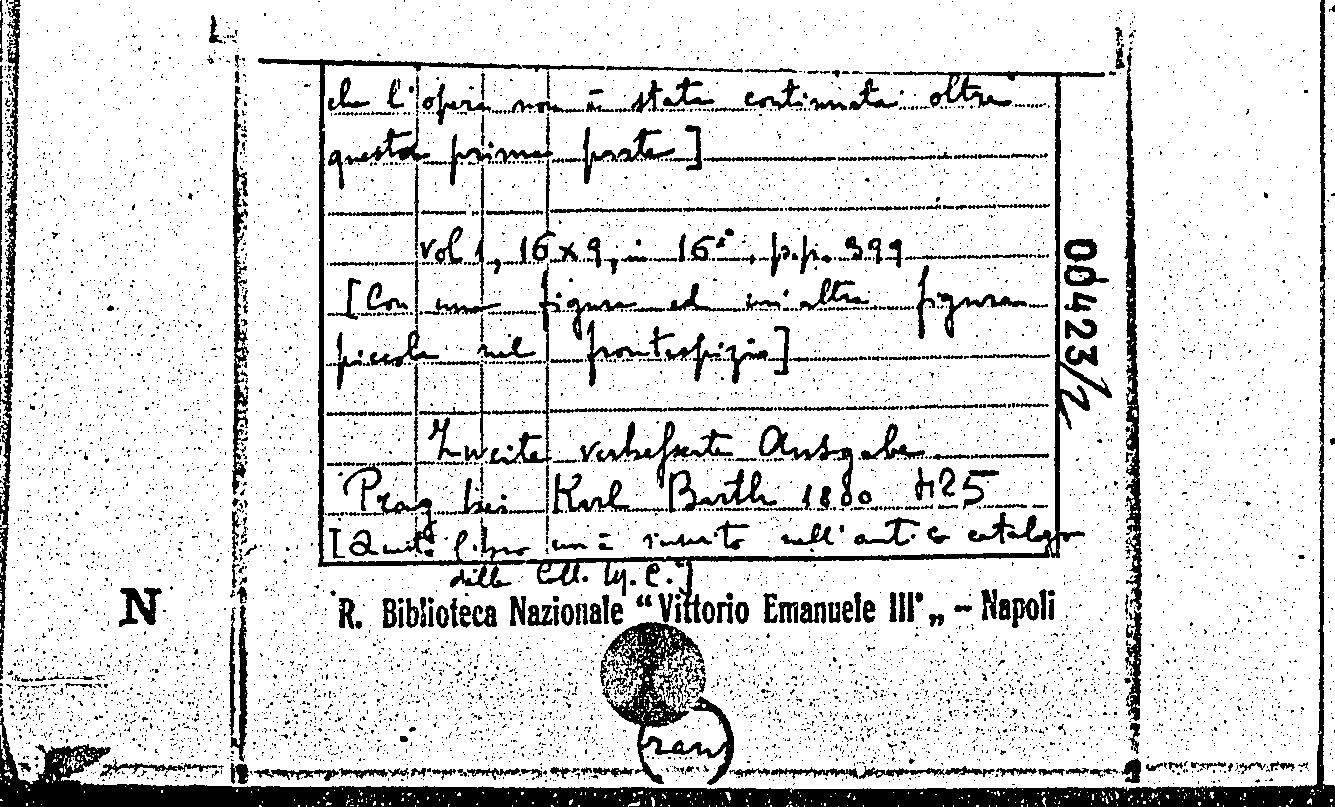 che l'opera non è stata continuata oltre
questa prima parte]
vol 1, 16x9, in 16°, pp. 399
[Con una figura ed un'altra figura
piccola nel frontespizio]
Zweite verbesserte Ausgabe
Prag bei Karl Barth 1800 425
[Questo libro non è inserito nell'antico catalogo
della Coll. Ly. C.]
R. Biblioteca Nazionale “Vittorio Emanuele III„ - Napoli
00423/2
N